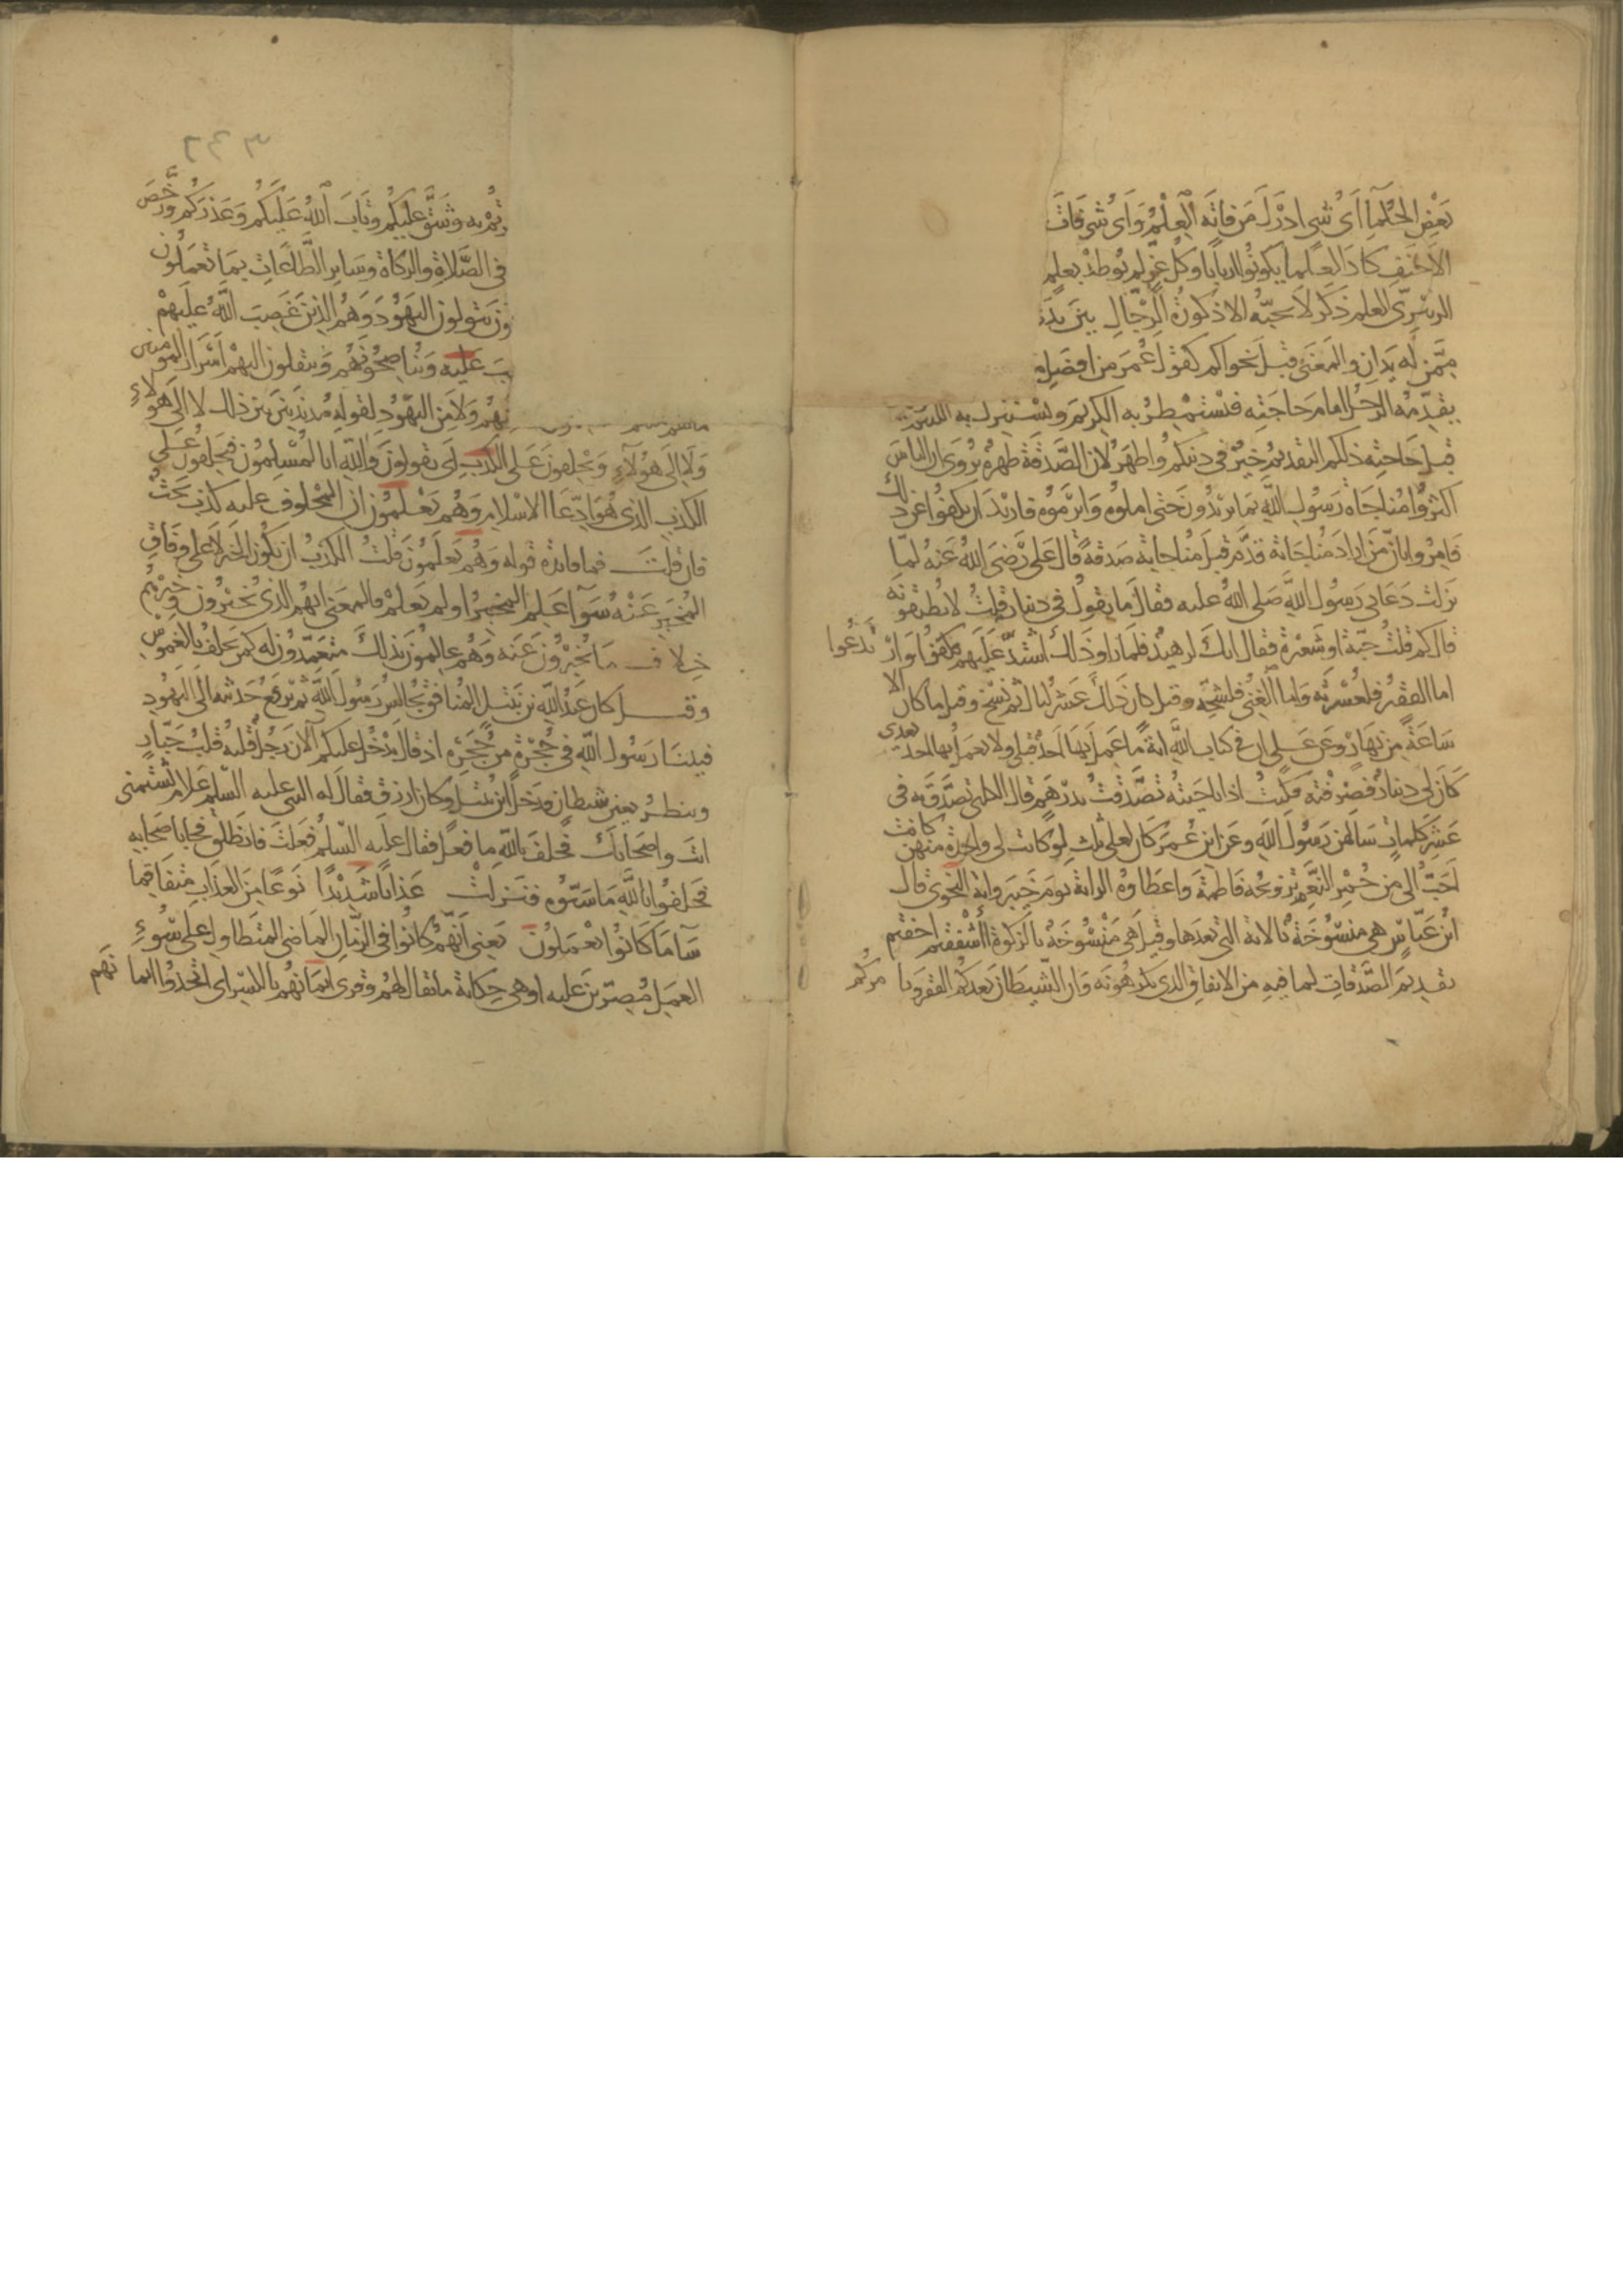 بَعْضِ الحُكَمآءِ اَىُّ شَىءٍ ادْرَكَ مَن فاتَه العِلْمُ وَاَىُّ شَىءٍ فَاتَ
الاَحْنَفِ كَادَ العُلَمآ يَكونُوا اَربابًا وكُلُّ عِزٍّ لم يُوطَدْ بعِلْمٍ
الزبيرىّ العلم ذَكَرٌ لاَ يُحِبُّهُ الا ذُكورَةُ الرِّجَالِ بَيْنَ يَدَى
مِمَّن لَه يَدَانِ والمَعْنَى قبْلَ نَجواكم كقَولِ عُمَرَ مِن افضَلِ
يقَدِّمُه الرجُلُ امامَ حَاجَتِه فيَسْتَمْطِرُ به الكَرِيمَ ويَسْتَنزِلُ به اللئيمَ
قبلَ حَاجَتِه ذلكم التقديمُ خيْرٌ فى دينكم واطهَرُ لاَن الصَّدَقَةَ طُهرَةٌ رُوِىَ ان الناسَ
اكثرُوا مُنَاجَاةَ رَسُولِ اللّٰهِ بمَا يريدُونَ حَتى املُّوه وَابْرَمُوه فارِيْدَ ان يكفُّوا عن ذلك
فامِرُوا بانّ مَن ارادَ مُنَاجَاتَه قدَّم قبلَ مُناجاتِه صَدقةً قال عَلىٌّ رَضىَ اللهُ عَنهُ لمّا
نزلت دَعَانى رَسُولُ اللهِ صَلى اللهُ عليه فقَالَ مَا يقولُ فى دينار قلتُ لا يُطيقونَه
قالَ كم قلتُ حَبّةٌ او شَعِيْرةٌ فقال انكَ لزهيدٌ فلمَا رَاوا ذَلكَ اشتدَّ عَليهِم فكفُّوا وَارْتدَعُوا
اما الفقيْرُ فلعُسْرَتِه وَاما الغَنِىُّ فلشُحِّه وقيل كان ذلكَ عَشْرَ ليالٍ ثم نُسِخَ وقيل ما كان الا
سَاعَةً مِن نهَارٍ وعَن عَلىٍّ ان فى كتاب اللهِ ايةً ما عَمِلَ بهَا اَحَدٌ قبلى ولا يَعمَلُ بها احَدٌ بعدى
كَانَ لى دينارٌ فصَرَفْتُه فكنتُ اذا ناجَيتُه تصَدَّقتُ بدرْهَمٍ قال الكلبى تصَدَّقَ به فى
عَشْرِ كلماتٍ سَالهُن رَسُولَ اللهِ وعَنِ ابنِ عُمَرَ كان لعلىٍّ ثلثٌ لو كانت لى واحِدَةٌ منهُنّ كانت
اَحَبَّ الىَّ من حُمْرِ النَّعَمِ تزويجُه فَاطمَةَ واعطَاؤهُ الرايَةَ يومَ خَيبَرَ وايةُ النجوَى قال
ابْنُ عَبّاسٍ هى مَنسُوْخَةٌ بالاية التى بَعدَها وقيل هَى مَنْسُوْخَةٌ بالزكوةِ أأشْفَقْتم اخِفْتم
تقديمَ الصَّدَقاتِ لما فيهِ من الانفاقِ الذى تكرَهُونَه وَان الشّيطانَ يعِدكُم الفقرَ ويامرُكُم
تم به وشَقَّ عليكُم وتَابَ اللهُ عَلَيْكُم وَعَذَرَكُم ورَخَّصَ
فى الصَّلاةِ والزكاةِ وسَايرِ الطَّاعَاتِ بمَا تعْمَلُون
ون يتولون اليَهُوْدَ وَهُمُ الذين غَضِبَ اللهُ عَلَيهِمْ
بَ عَلَيْه وَيُنَاصِحُونَهُم وَينقلونَ اليهِمْ اَسْرَارَ المؤمنين
نهُم وَلا مِنَ اليَهُودِ لقولِه مُذبذَبينَ بين ذلك لا اِلَى هَؤلاءِ
وَلا اِلَى هَؤلآءِ وَيَحْلِفونَ عَلى الكذِبِ اى يَقولونَ وَاللّٰهِ انا لَمُسْلِمُون فيَحلفونَ عَلَى
الكذبِ الذى هُوَ ادِّعَا الاسْلام وَهُم يَعْلَمُونَ ان المَحْلوفَ عليه كذبٌ بَحْتٌ
فان قلتَ فما فائدة قوله وَهُم يَعلَمُونَ قلتُ الكذبُ ان يكونَ الخبَرُ لا عَلى وِفَاقِ
المُخْبَرِ عَنْهُ سَوَآءٌ عَلِمَ المخبِرُ او لم يَعلَمْ فالمعَنى انهم الذين يُخبرُونَ وخبَرُهُم
خِلاف مَا يُخْبِرُونَ عَنه وَهُم عالمونَ بذلكَ متعَمِّدُونَ له كمَن يَحلفُ بالغَموسِ
وقيل كان عَبْدُ اللهِ بن نَبْتَل المُنافقُ يُجَالِسُ رَسُولَ اللهِ ثم يرفَعُ حَديثه الى اليَهُودِ
فبينَا رَسُولُ اللهِ فى حُجْرَةٍ مِن حُجَرِه اذ قال يَدْخُلُ عليكم الآنَ رَجُلٌ قلبُه قلبُ جَبّارٍ
وينظرُ بعين شيطانٍ فدَخَل ابن نبتَل وكان ازرَق فقالَ له النبى عليه السّلم عَلامَ تَشْتِمنى
انتَ واصحَابُك فحَلفَ باللهِ ما فعَل فقالَ عليه السّلمُ فعَلتَ فانطَلقَ فجا باصحَابه
فحَلفُوا باللهِ مَا سَبّوه فنزلتْ عَذابًا شَدِيْدًا نَوعًا مِنَ العذابِ متفَاقِمًا
سَآ مَا كَانُوا يَعْمَلوُن يَعنى اَنّهُم كانُوا فى الزمانِ المَاضى المتطاول على سُوءِ
العمَلِ مُصِرّين عليه او هى حِكاية ما يقال لهُم وقرى ايمَانَهُم بالكسر اى اتخذوا ايمانَهم